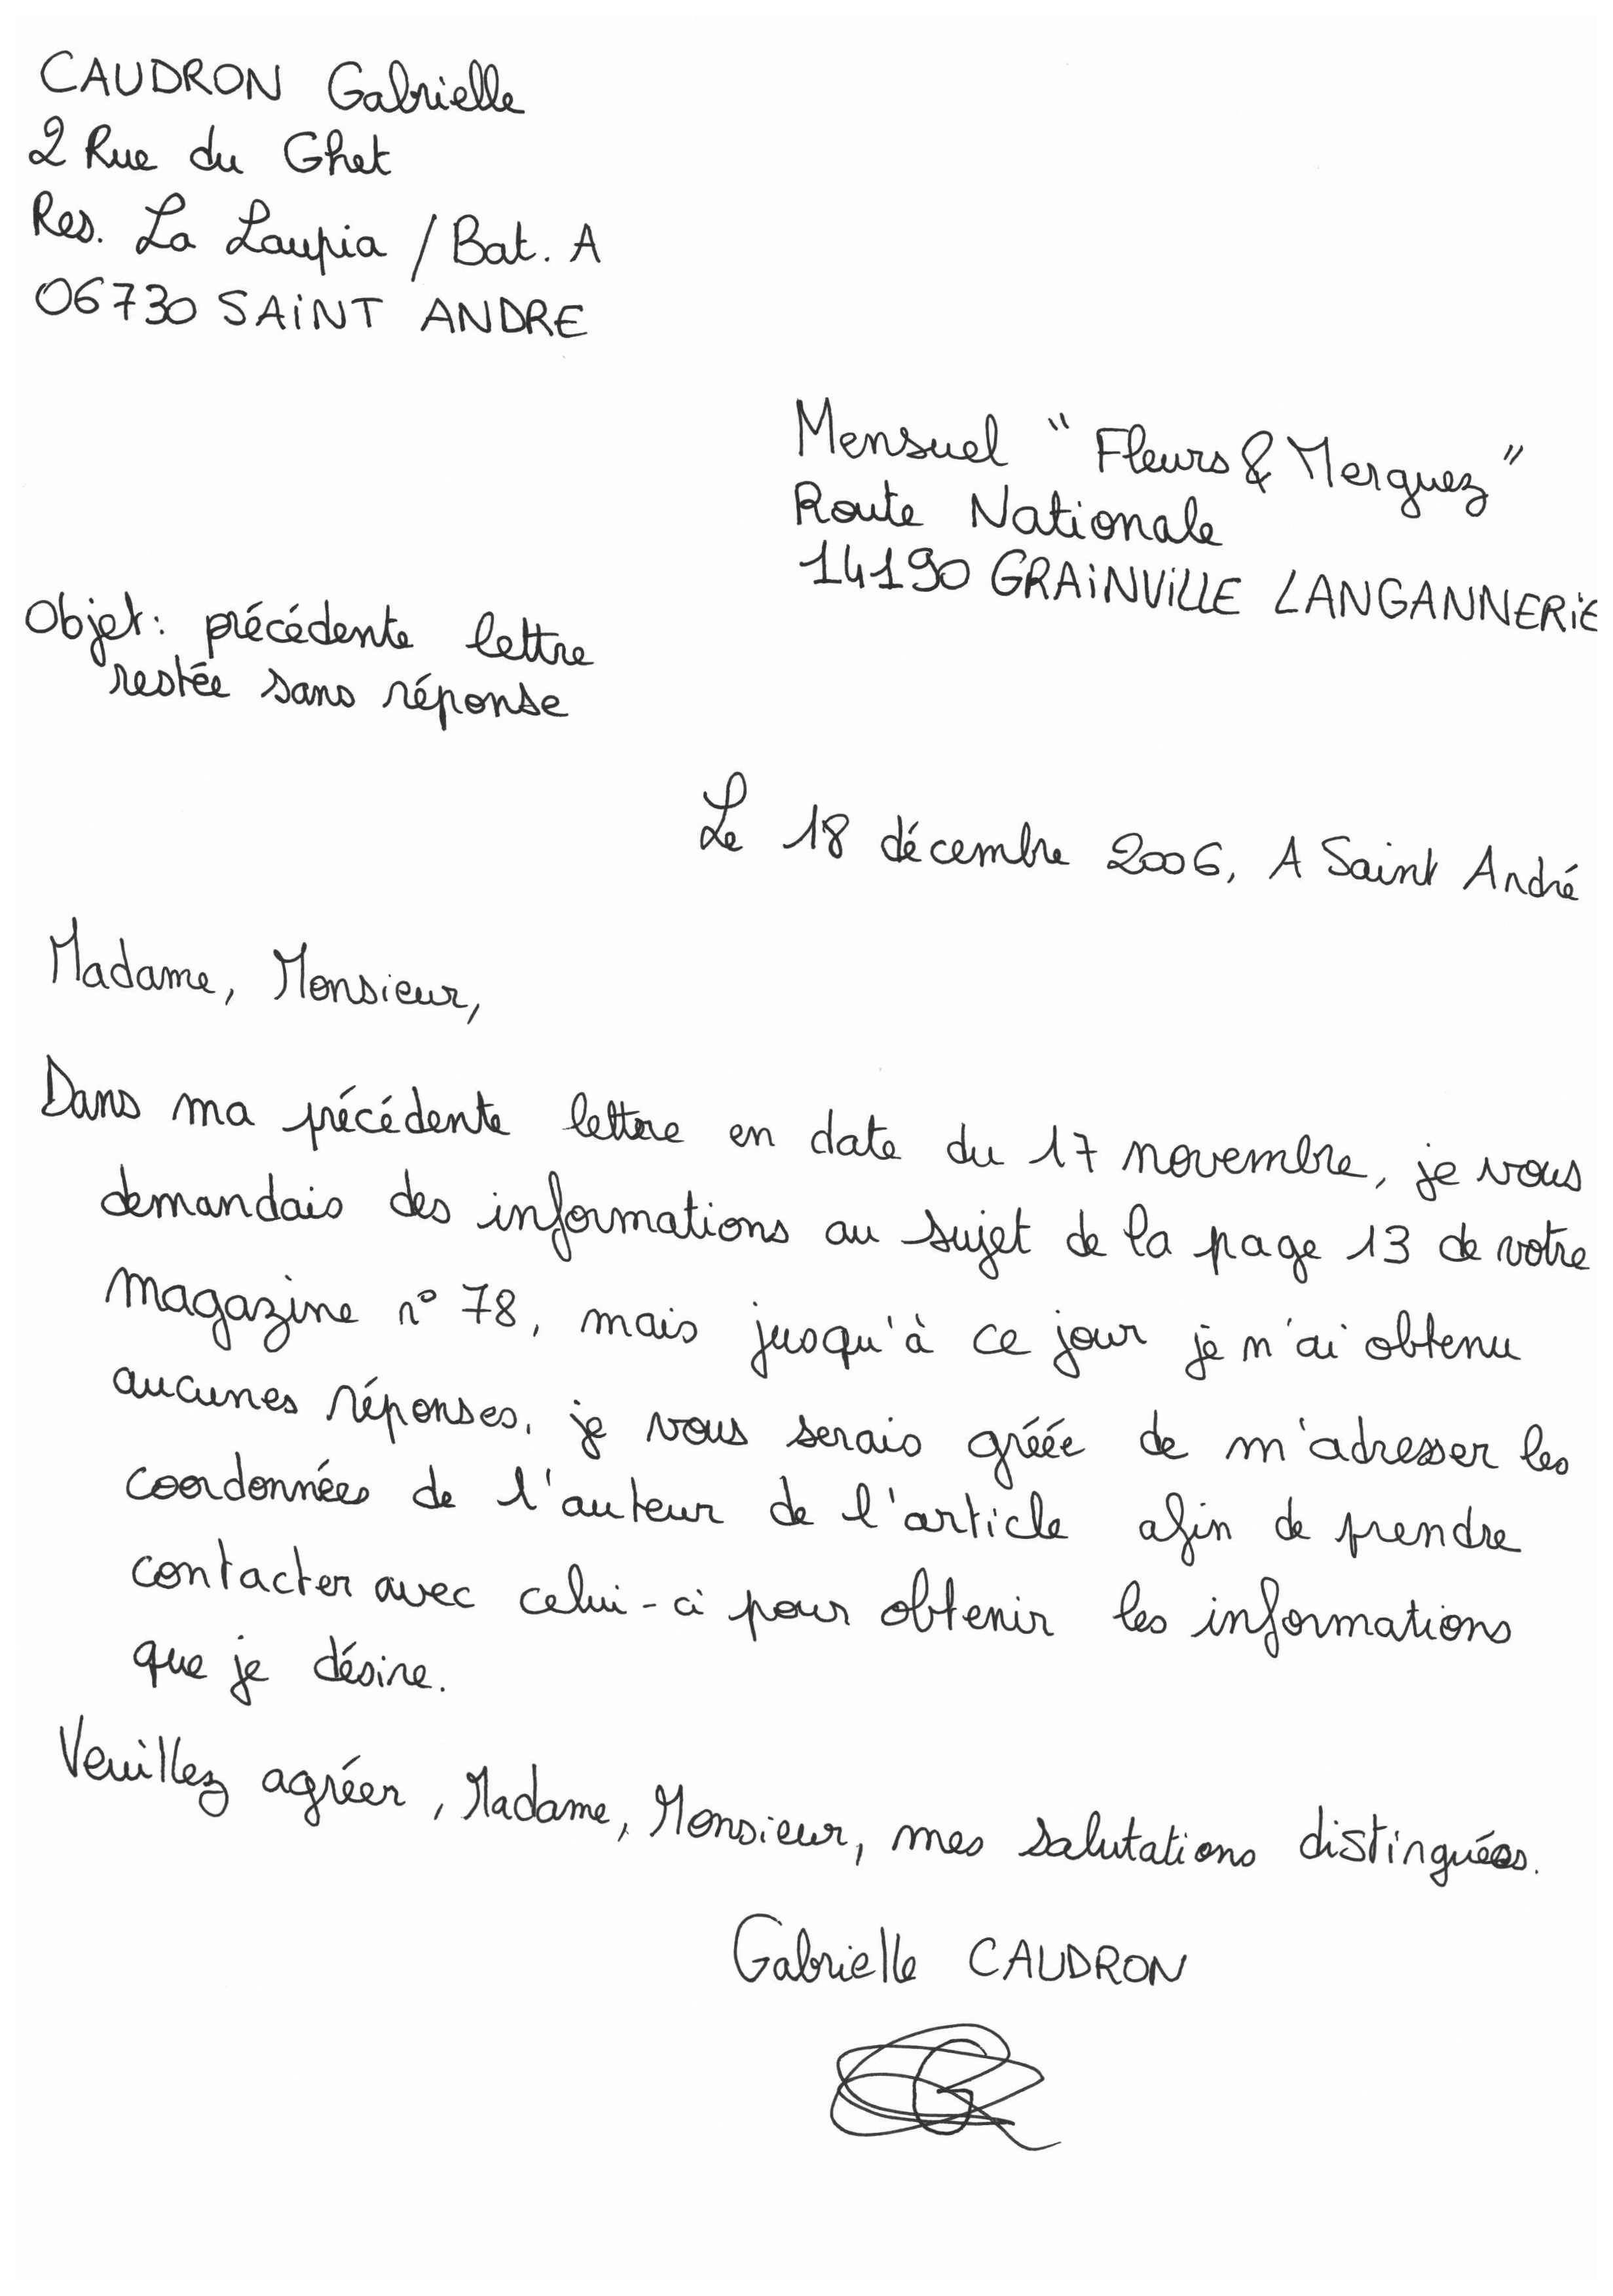 CAUDRON Gabrielle
2 Rue du Ghet
Res. La Laupia / Bat. A
06730 SAINT ANDRE
Mensuel "Fleurs & Merguez"
Route Nationale
14190 GRAINVILLE LANGANNERIE
Objet: précédente lettre
restée sans réponse
Le 18 décembre 2006, A Saint André
Madame, Monsieur,
Dans ma précédente lettre en date du 17 novembre, je vous
demandais des informations au sujet de la page 13 de votre
magazine n° 78, mais jusqu'à ce jour je n'ai obtenu
aucunes réponses, je vous serais gréée de m'adresser les
coordonnées de l'auteur de l'article afin de prendre
contacter avec celui-ci pour obtenir les informations
que je désire.
Veuillez agréer, Madame, Monsieur, mes salutations distinguées.
Gabrielle CAUDRON